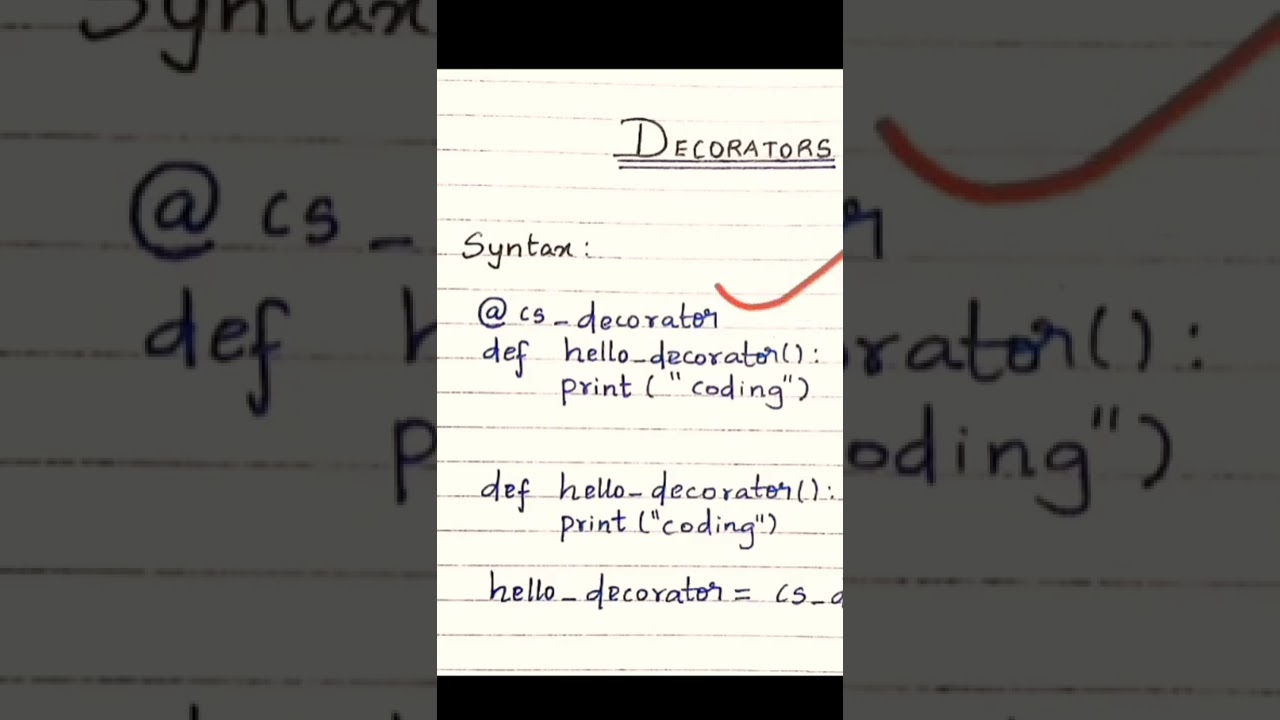 DECORATORS
Syntax:
@cs_decorator
def hello_decorator():
print ("coding")
def hello_decorator():
print ("coding")
hello_decorator = cs_d